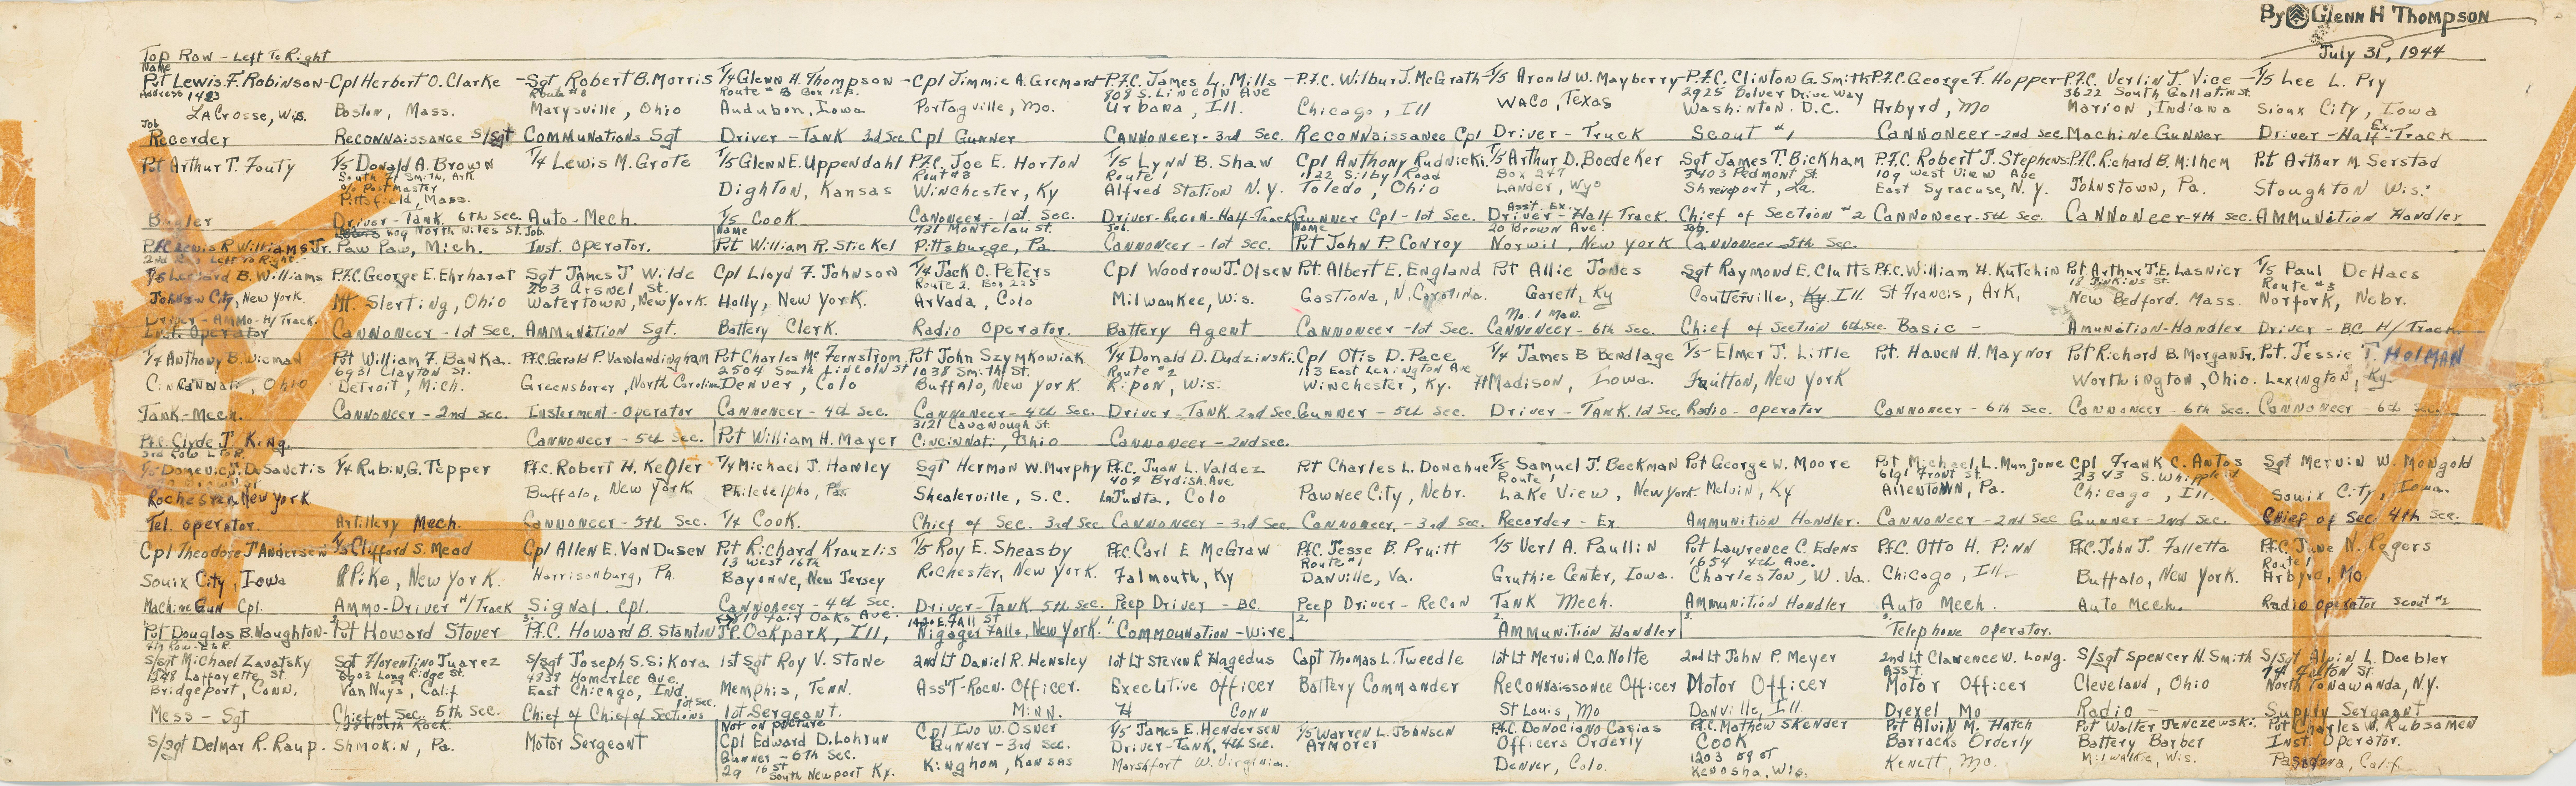 By Glenn H Thompson
July 31, 1944
Top Row - Left To Right
Name
Pvt Lewis F. Robinson - Cpl Herbert O. Clarke - Sgt Robert B. Morris T/4 Glenn H. Thompson - Cpl Jimmie A. Gremard - P.F.C. James L. Mills - P.F.C. Wilbur J. McGrath - T/5 Aronld W. Mayberry - P.F.C. Clinton G. Smith P.F.C. George F. Hopper - P.F.C. Verlin J. Vice - T/5 Lee L. Pry
Address 1423 Route #3 Route # B Box 12 B. 808 S. Lincoln Ave 2925 Bolver Drive Way 3622 South Gallatin St.
LaCrosse, Wis. Boston, Mass. Marysville, Ohio Audubon, Iowa Portagville, Mo. Urbana, Ill. Chicago, Ill Waco, Texas Washinton. D.C. Arbyrd, Mo Marion, Indiana Sioux City, Iowa
Job Ex.
Recorder Reconnaissance S/Sgt Communations Sgt Driver - Tank 3rd Sec. Cpl Gunner Cannoneer - 3rd Sec. Reconnaissance Cpl Driver - Truck Scout #1 Cannoneer - 2nd Sec. Machine Gunner Driver - Half - Track
Pvt Arthur T. Fouty T/5 Donald A. Brown T/4 Lewis M. Grote T/5 Glenn E. Uppendahl P.F.C. Joe E. Horton T/5 Lynn B. Shaw Cpl Anthony Rudnicki T/5 Arthur D. Boedeker Sgt James T. Bickham P.F.C. Robert J. Stephens P.F.C. Richard B. Milhem Pvt Arthur M. Serstad
South Ft Smith, Ark Route #3 Route 1 1122 Silby Road Box 247 3403 Pedmont St. 109 West View Ave
c/o Postmaster Dighton, Kansas Winchester, Ky Alfred Station N.Y. Toledo, Ohio Lander, Wyo Shreveport, La. East Syracuse, N.Y. Johnstown, Pa. Stoughton Wis.
Pittsfield, Mass.
Asst. Ex.
Bugler Driver - Tank, 6th Sec. Auto - Mech. T/5 Cook Canoneer - 1st Sec. Driver - Recon - Half - Track Gunner Cpl - 1st Sec. Driver - Half Track. Chief of Section #2 Cannoneer - 5th Sec. Cannoneer - 4th Sec. Ammunition Handler
409 North Niles St. Job. Name 731 Montclau St. Job. Name 20 Brown Ave. Job.
P.F.C. Lewis R. Williams Jr. Paw Paw, Mich. Inst. Operator. Pvt William R. Stickel Pittsburge, Pa. Cannoneer - 1st Sec. Pvt John P. Conroy Norwil, New York Cannoneer 5th Sec.
2nd Row Left To Right -
T/5 Leonard B. Williams P.F.C. George E. Ehrharat Sgt James J Wilde Cpl Lloyd F. Johnson T/4 Jack O. Peters Cpl Woodrow J. Olsen Pvt. Albert E. England Pvt Allie Jones Sgt Raymond E. Clutts P.F.C. William H. Kutchin Pvt. Arthur J.E. Lasnier T/5 Paul DeHaes
263 Arswel St. Route 2. Box 225 18 Jinkins St. Route #3
Johnson City, New York. Mt Slerting, Ohio Watertown, New York. Holly, New York. Arvada, Colo Milwaukee, Wis. Gastiona, N. Carolina. Garett, Ky Coutterville, Ky. Ill. St Francis, Ark, New Bedford. Mass. Norfork, Nebr.
Driver - Ammo - H/Track. No. 1 Man.
Inst. Operator Cannoneer - 1st Sec. Ammunition Sgt. Battery Clerk. Radio Operator. Battery Agent Cannoneer - 1st Sec. Cannoneer - 6th Sec. Chief of Section 6th Sec. Basic - Amunation - Handler Driver - B.C. H/Track
T/4 Anthony B. Wieman Pvt William F. Banka. P.F.C. Gerald P. Vanlandingham Pvt Charles Mc Fernstrom Pvt John Szymkowiak T/4 Donald D. Dudzinski. Cpl Otis D. Pace T/4 James B Bendlage T/5 - Elmer J. Little Pvt. Haven H. Maynor Pvt Richard B. Morgan Jr. Pvt. Jessie T. Holman
6931 Clayton St. 2504 South Lincoln St 1038 Smith St. Route #2 113 East Lexington Ave
Cincinnati, Ohio Detroit, Mich. Greensborer, North Carolina Denver, Colo Buffalo, New York. Ripon, Wis. Winchester, Ky. Ft Madison, Iowa. Fquitton, New York Worthington, Ohio. Lexington, Ky.
Tank - Mech. Cannoneer - 2nd Sec. Insterment - Operator Cannoneer - 4th Sec. Cannoneer - 4th Sec. Driver - Tank. 2nd Sec. Gunner - 5th Sec. Driver - Tank. 1st Sec, Radio - Operator Cannoneer - 6th Sec. Cannoneer - 6th Sec. Cannoneer - 6th Sec.
3121 Cavanough St.
P.F.C. Clyde J. King. Cannoneer - 5th Sec. Pvt William H. Mayer Cincinnati, Ohio Cannoneer - 2nd Sec.
3rd Row L To R.
T/5 Domenic J. DeSanctis T/4 Rubin, G. Tepper P.F.C. Robert H. Kegler T/4 Michael J. Hanley Sgt Herman W. Murphy P.F.C. Juan L. Valdez Pvt Charles L. Donahue T/5 Samuel J. Beckman Pvt George W. Moore Pvt Michael L. Munjone Cpl Frank C. Antos Sgt Mervin W. Mongold
404 Brdish Ave Route 1 619½ Front St. 2343 S. Whipple st
Rochester, New York Buffalo, New York. Philedelpha, Pa. Shealerville, S.C. LaJudta, Colo Pawnee City, Nebr. Lake View, New York. Melvin, Ky Allentown, Pa. Chicago, Ill. Souix City, Iowa.
Tel. operator. Artillery Mech. Cannoneer - 5th Sec. T/4 Cook. Chief of Sec. 3rd Sec Cannoneer - 3rd Sec. Cannoneer. - 3rd Sec. Recorder - Ex. Ammunition Handler. Cannoneer - 2nd Sec Gunner - 2nd Sec. Chief of Sec 4th Sec.
Cpl Theodore J Andersen T/5 Clifford S. Mead Cpl Allen E. Van Dusen Pvt Richard Kranzlis T/5 Roy E. Sheasby P.F.C. Carl E McGraw P.F.C. Jesse B. Pruitt T/5 Verl A. Paullin Pvt Lawrence C. Edens P.F.C. Otto H. Pinn P.F.C. John J. Falletta P.F.C. June N. Rogers
13 West 16th Route #1 1654 4th Ave. Route 1
Souix City, Iowa Pike, New York. Harrisonburg, Pa. Bayonne, New Jersey Rochester, New York. Falmouth, Ky Danville, Va. Gruthie Center, Iowa. Charleston, W. Va. Chicago, Ill - Buffalo, New York. Arbyrd, Mo.
Machine Gun Cpl. Ammo - Driver H/Track Signal. Cpl. Cannoneer - 4th Sec. Driver - Tank. 5th Sec. Peep Driver - BC. Peep Driver - Recon Tank Mech. Ammunition Handler Auto Mech. Auto Mech. Radio Operator Scout #2
1. 2. 3. 810 Fair Oaks Ave. 1420 E. Fall St 1. 2. 2. 3. 3.
Pvt Douglas B. Naughton - Pvt Howard Stover P.F.C. Howard B. Stanton Jr. Oakpark, Ill, Nigager Falls, New York. Commounation - Wire Ammunition Handler Telephone Operator.
4th Row - L to R.
S/Sgt Michael Zavatsky Sgt Florentino Juarez S/Sgt Joseph S. Sikora 1st Sgt Roy V. Stone 2nd Lt Daniel R. Hensley 1st Lt Steven R Hagedus Capt Thomas L. Tweedle 1st Lt Mervin Co. Nolte 2nd Lt John P. Meyer 2nd Lt Clarence W. Long. S/Sgt Spencer H. Smith S/Sgt Alvin L. Doebler
1348 Laffayette St. 6903 Long Ridge St. 4838 Homer Lee Ave. Ass'T. 74 Fulton St.
Bridgeport, Conn. Van Nuys, Calif. East Chicago, Ind. Memphis, Tenn. Ass'T - Rocn. Officer. Executive Officer Battery Commander Reconnaissance Officer Motor Officer Motor Officer Cleveland, Ohio North Tonawanda, N.Y.
1st Sec.
Mess - Sgt Chief of Sec. 5th Sec. Chief of Chief of Sections 1st Sergeant. Minn. Conn St Louis, Mo Danville, Ill. Drexel Mo Radio - Supply Sergeant
728 North Rock. Not on picture
S/Sgt Delmar R. Raup. Shmokin, Pa. Motor Sergeant Cpl Edward D. Lohrun Cpl Ivo W. Osner T/5 James E. Hendersen T/5 Warren L. Johnsen P.F.C. Donociano Casias P.F.C. Mathew Skender Pvt Alvin M. Hatch Pvt Walter Jenczewski. Pvt Charles W. Rubsamen
Gunner - 6th Sec. Gunner - 3rd Sec. Driver - Tank, 4th Sec. Armorer Officers Orderly Cook Barracks Orderly Battery Barber Inst. Operator.
29 16th St South Newport Ky. Kinghom, Kansas Marshfort W. Virginia. Denver, Colo. 1203 59 St Kenosha, Wis. Kenett, Mo. Milwaukie, Wis. Pasadena, Calif